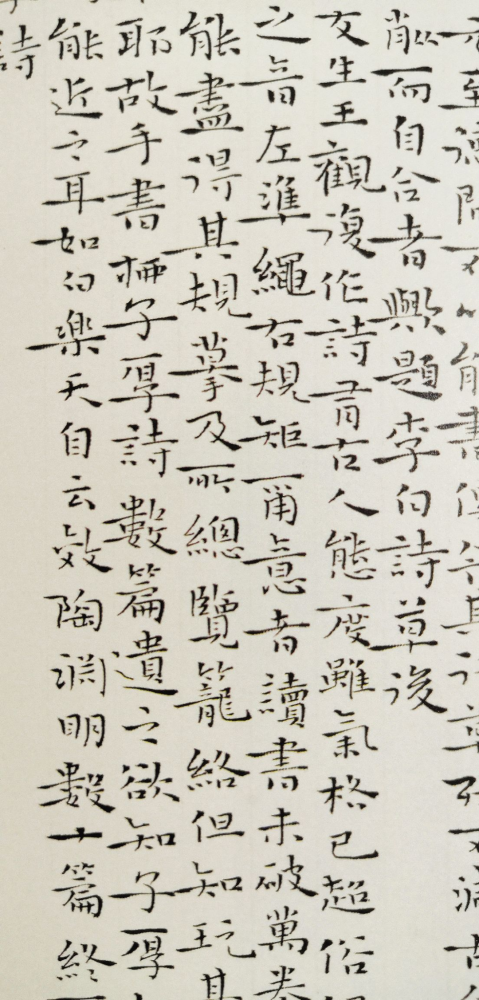 至德間不以能書傳今其行草殊不減古人
削而自合者歟題李白詩草後
友生王觀復作詩有古人態度雖氣格已超俗
之音左準繩右規矩爾意者讀書未破萬卷
能盡得其規摹及所總覽籠絡但知玩其
耶故手書柳子厚詩數篇遺之欲知子厚
能近之耳如白樂天自云效陶淵明數十篇終
詩